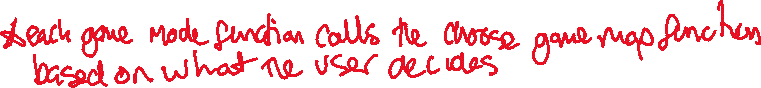 *each game mode function calls the choose game map function
based on what the user decides